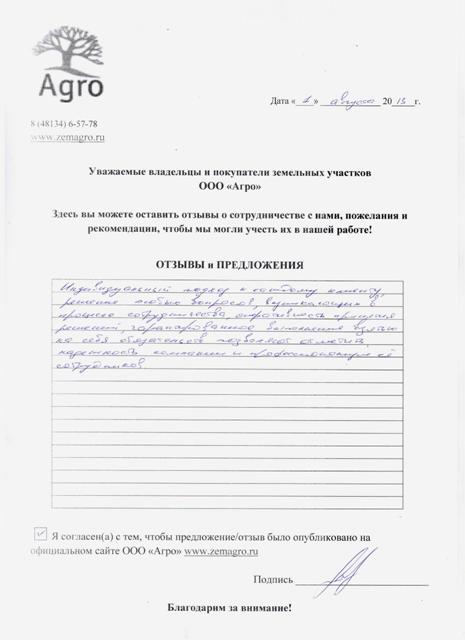 Agro
Дата « 1 » августа 2013 г.
8 (48134) 6-57-78
www.zemagro.ru
Уважаемые владельцы и покупатели земельных участков
ООО «Агро»
Здесь вы можете оставить отзывы о сотрудничестве с нами, пожелания и
рекомендации, чтобы мы могли учесть их в нашей работе!
ОТЗЫВЫ и ПРЕДЛОЖЕНИЯ
Индивидуальный подход к каждому клиенту,
решение любых вопросов, возникающих в
процессе сотрудничества, оперативность принятия
решений, гарантированное выполнение взятых
на себя обязательств позволяют отметить
надежность компании и профессионализм её
сотрудников.
Я согласен(а) с тем, чтобы предложение/отзыв было опубликовано на
официальном сайте ООО «Агро» www.zemagro.ru
Подпись
Благодарим за внимание!